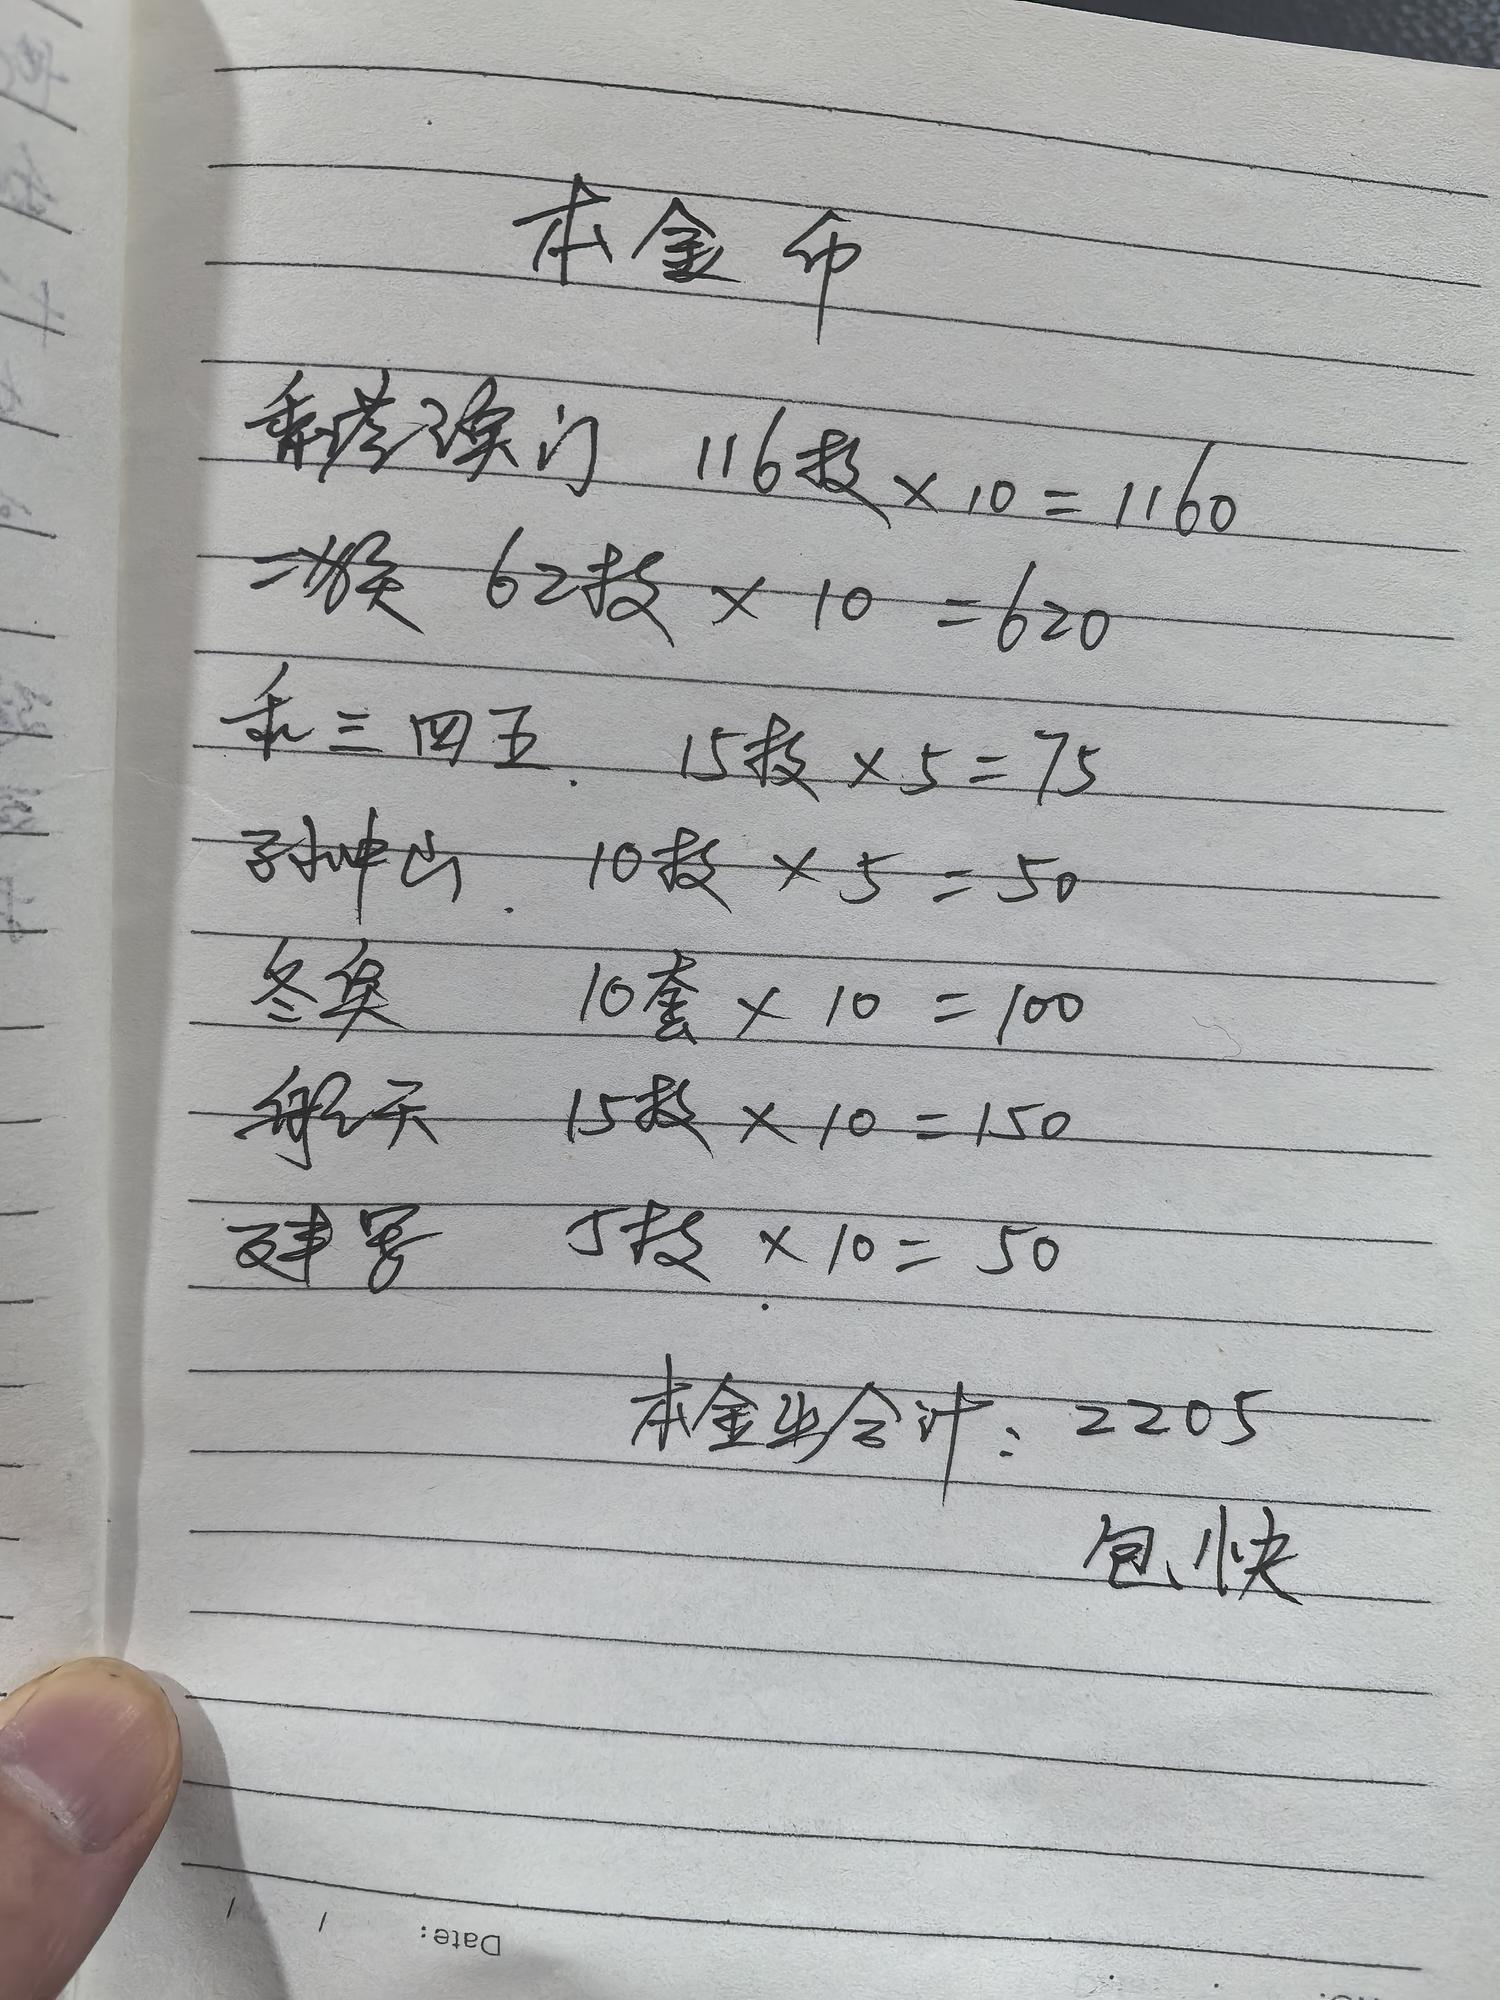 本金币
香港澳门 116枚×10=1160
二猴 62枚×10=620
和三四五. 15枚×5=75
孙中山. 10枚×5=50
冬奥 10套×10=100
航天 15枚×10=150
建军 5枚×10=50
本金业合计: 2205
包快
Date: